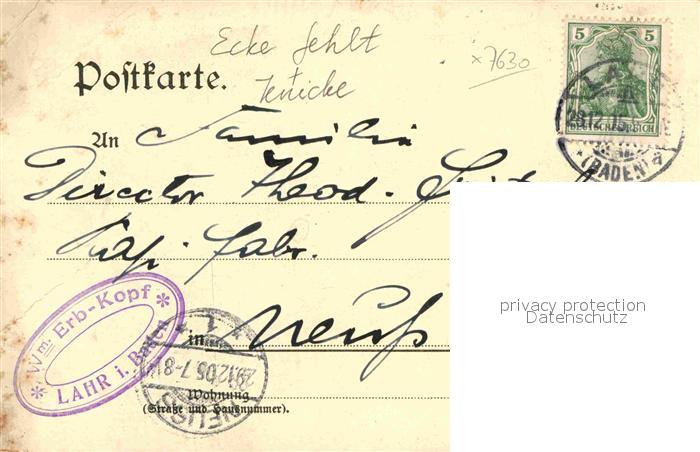 Ecke fehlt
Postkarte.
×7630
5 5
DEUTSCHES REICH
LAHR
(BADEN)
An Familie
Director Theod.
Pap. Fabr.
Wm. Erb-Kopf
LAHR i. Baden
in Neuß
NEUSS
29.12.05.7-8
Wohnung
(Straße und Hausnummer).
privacy protection
Datenschutz